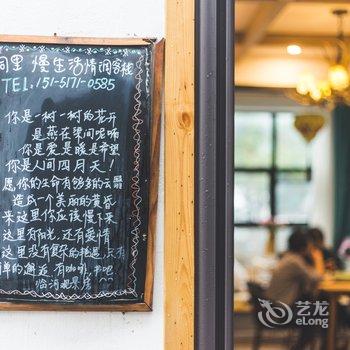 同里 慢生活情调客栈
TEL. 151-5171-0585
你是一树一树的花开
是燕在梁间呢喃
你是爱是暖是希望
你是人间四月天！
愿你的生命有够多的云翳
造成一个美丽的黄昏
来这里你应该慢下来
这里有阳光，还有爱情
这里没有复杂的
有咖啡
临河观景房
艺龙
eLong.